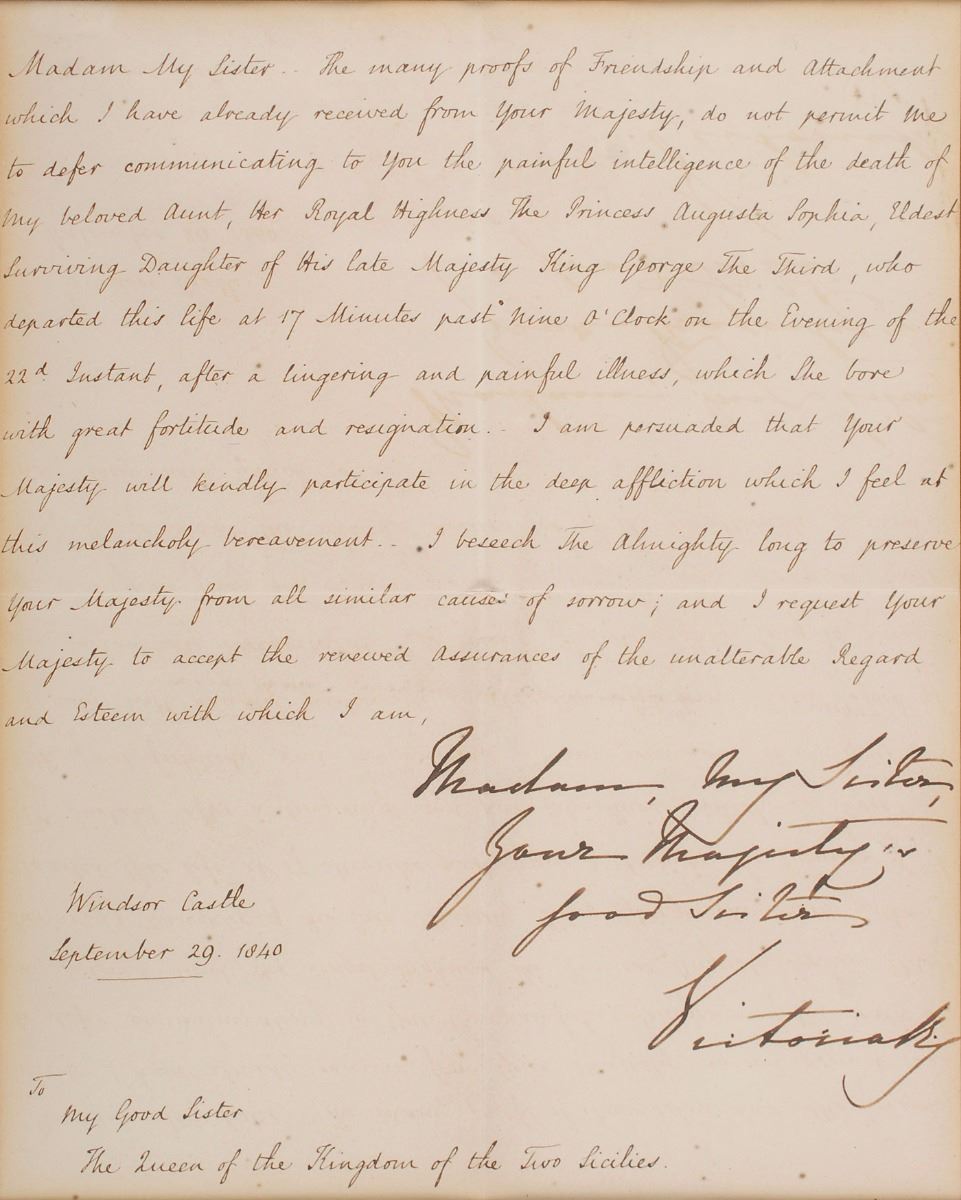 Madam My Sister.. The many proofs of Friendship and Attachment
which I have already received from Your Majesty, do not permit Me
to defer communicating to You the painful intelligence of the death of
My beloved Aunt, Her Royal Highness The Princess Augusta Sophia, Eldest
Surviving Daughter of His late Majesty King George The Third, who
departed this life at 17 Minutes past Nine O'Clock on the Evening of the
22d Instant, after a lingering and painful illness, which She bore
with great fortitude and resignation.. I am persuaded that Your
Majesty will kindly participate in the deep affliction which I feel at
this melancholy bereavement.. I beseech The Almighty long to preserve
Your Majesty from all similar causes of sorrow; and I request Your
Majesty to accept the renewed Assurances of the unalterable Regard
and Esteem with which I am,
Madam, My Sister,
Your Majesty's
good Sister
Victoria R
Windsor Castle
September 29. 1840
To
My Good Sister
The Queen of the Kingdom of the Two Sicilies.